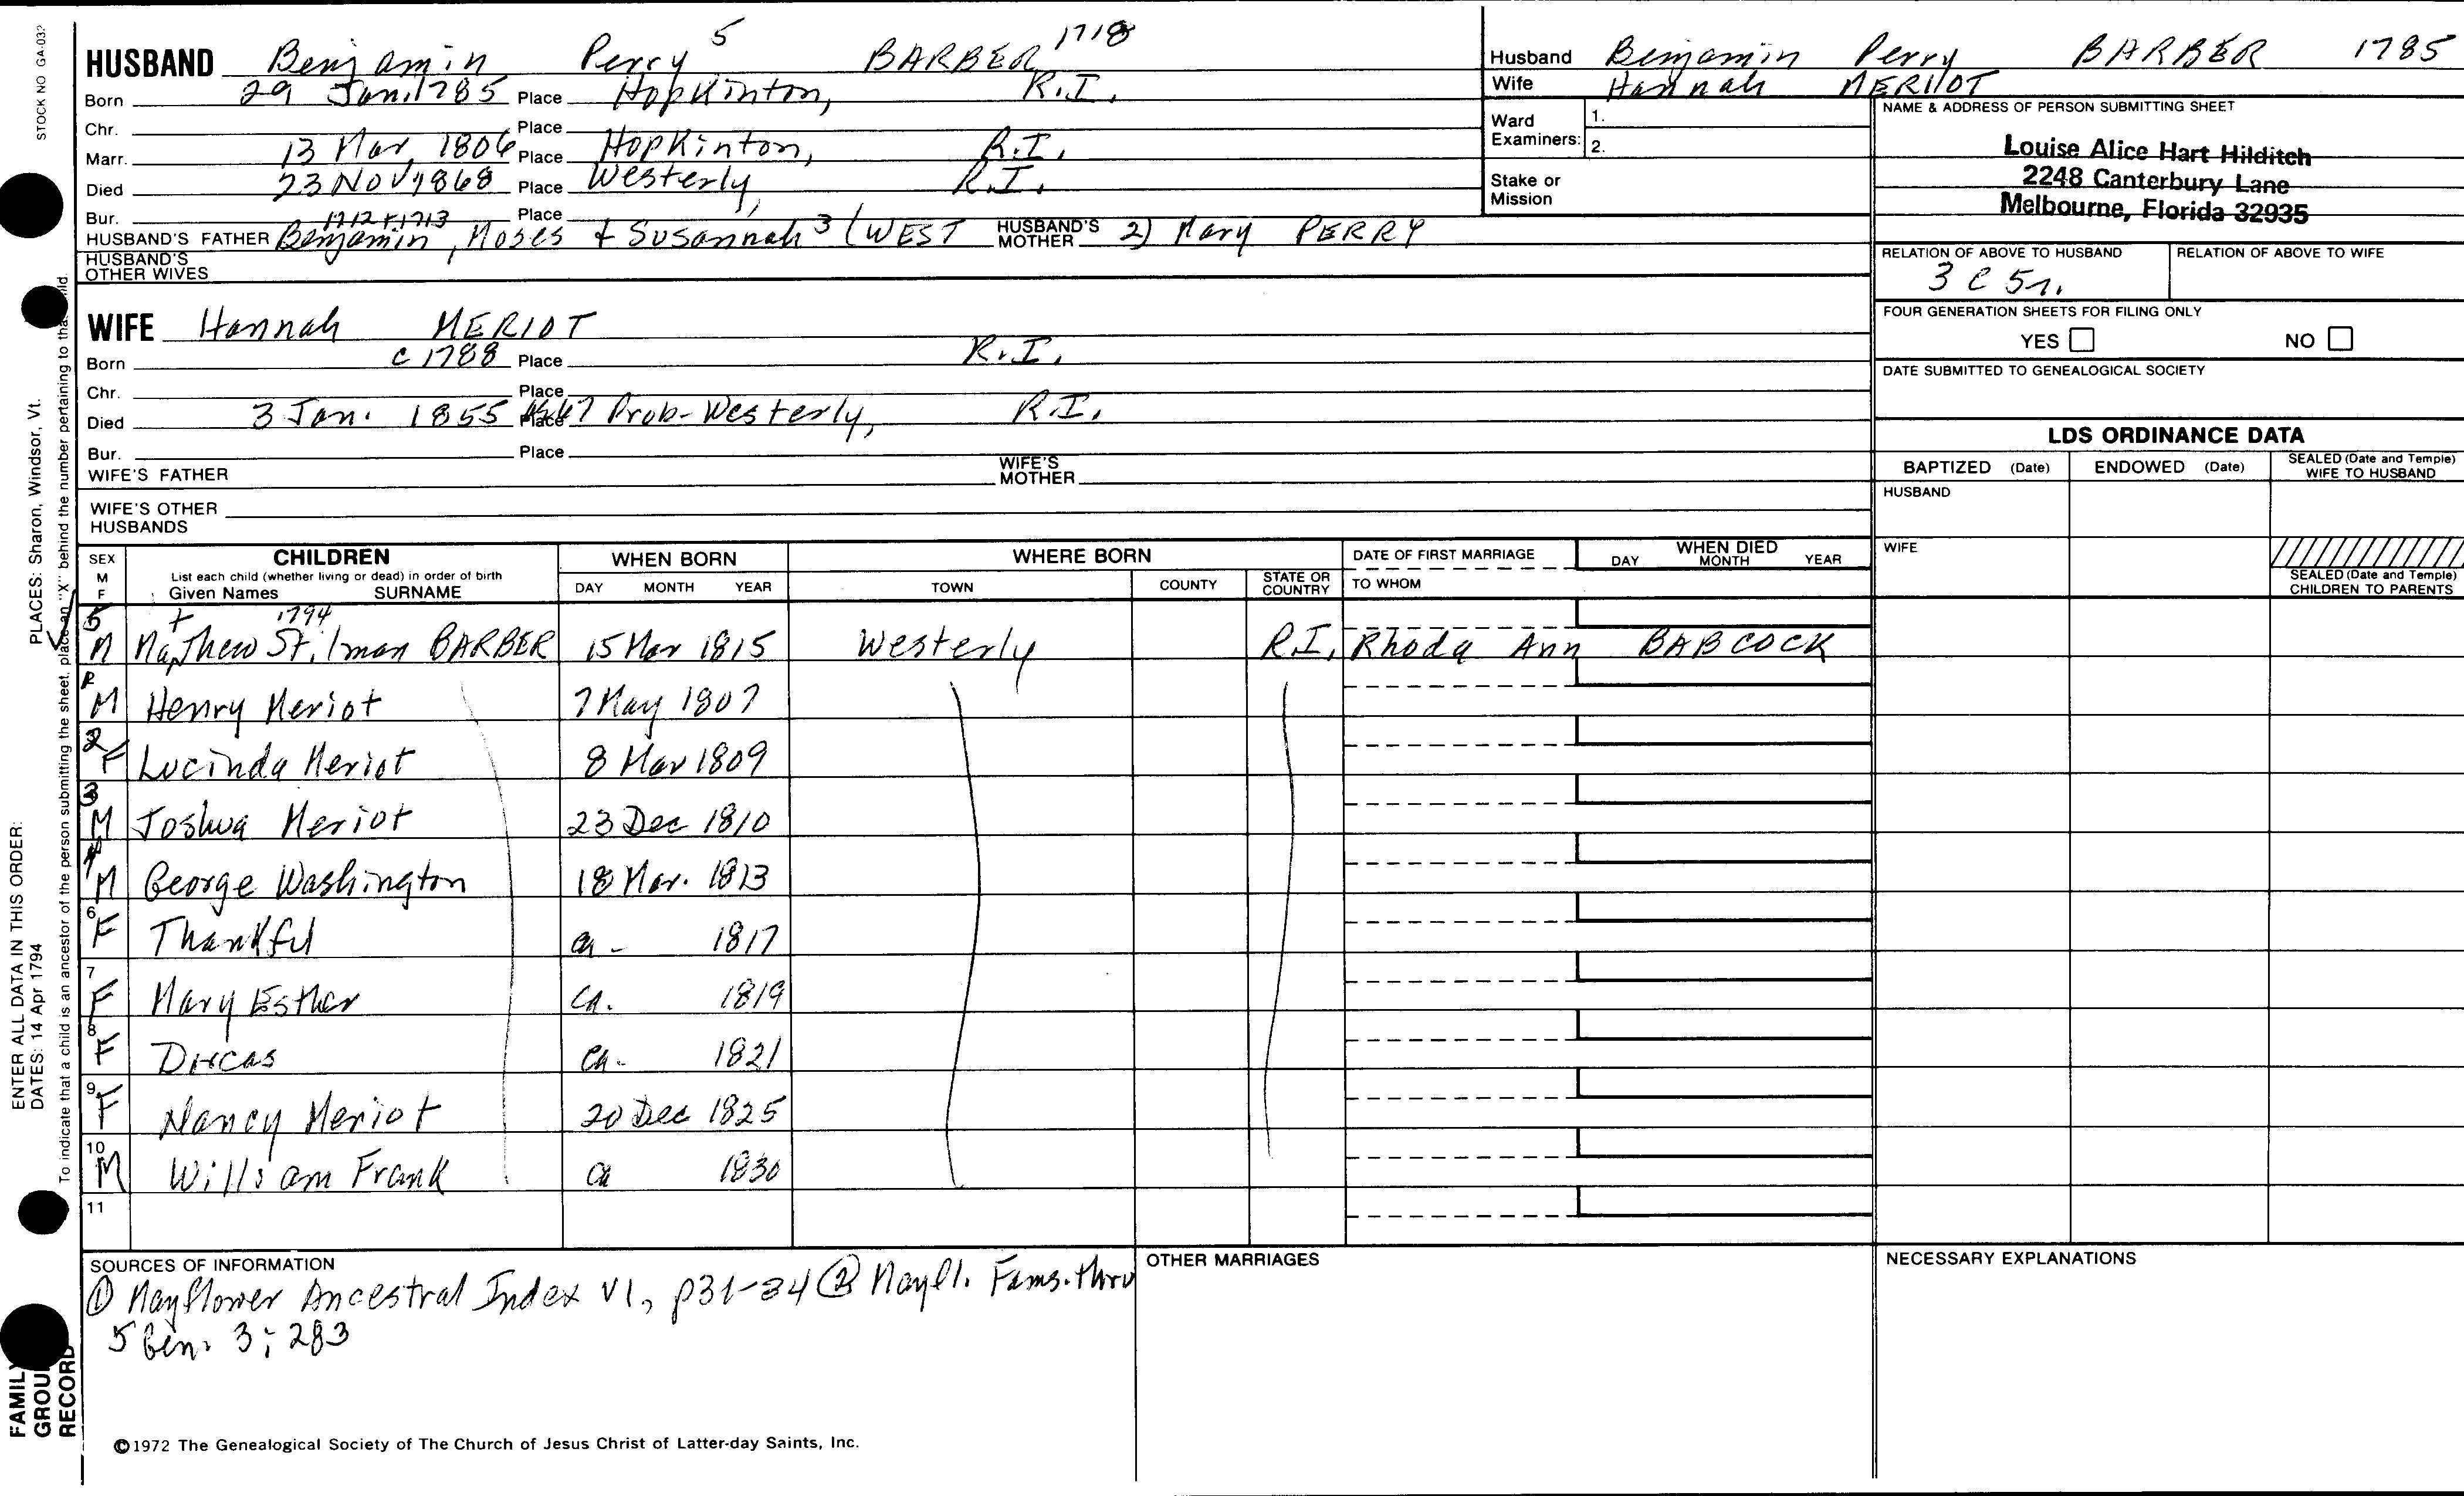 STOCK NO GA-03
HUSBAND Benjamin Perry 5 BARBER 1718
Born 29 Jan. 1785 Place Hopkinton, R.I.
Chr. Place
Marr. 13 Mar, 1806 Place Hopkinton, R.I.
Died 23 Nov 1868 Place Westerly, R.I.
Bur. Place
1712 + 1713
HUSBAND'S FATHER Benjamin, Moses + Susannah 3 (WEST HUSBAND'S MOTHER 2) Mary PERRY
HUSBAND'S OTHER WIVES
WIFE Hannah MERIOT
Born c 1788 Place R.I.
Chr. Place
Died 3 Jan. 1855 Place Prob- Westerly, R.I.
Bur. Place
WIFE'S FATHER WIFE'S MOTHER
WIFE'S OTHER HUSBANDS
Husband Benjamin Perry BARBER 1785
Wife Hannah MERIIOT
Ward Examiners: 1.
2.
Stake or Mission
NAME & ADDRESS OF PERSON SUBMITTING SHEET
Louise Alice Hart Hilditch
2248 Canterbury Lane
Melbourne, Florida 32935
RELATION OF ABOVE TO HUSBAND RELATION OF ABOVE TO WIFE
3 C 5r.
FOUR GENERATION SHEETS FOR FILING ONLY
YES NO
DATE SUBMITTED TO GENEALOGICAL SOCIETY
LDS ORDINANCE DATA
BAPTIZED (Date) ENDOWED (Date) SEALED (Date and Temple) WIFE TO HUSBAND
HUSBAND
WIFE
SEALED (Date and Temple) CHILDREN TO PARENTS
SEX M F CHILDREN WHEN BORN WHERE BORN DATE OF FIRST MARRIAGE WHEN DIED
List each child (whether living or dead) in order of birth
Given Names SURNAME DAY MONTH YEAR TOWN COUNTY STATE OR COUNTRY TO WHOM DAY MONTH YEAR
1794
5 M Mathew Stilman BARBER 15 Mar 1815 Westerly R.I. Rhoda Ann BABCOCK
M Henry Meriot 7 May 1807
2 F Lucinda Meriot 8 Mar 1809
3 M Joshua Meriot 23 Dec 1810
4 M George Washington 18 Mar. 1813
6 F Thankful ca - 1817
7 F Mary Esther ca. 1819
8 F Dorcas ca. 1821
9 F Nancy Meriot 20 Dec 1825
10 M William Frank ca 1830
11
SOURCES OF INFORMATION
① Mayflower Ancestral Index V1, p31-34 ② Mayfl. Fams. thru
5 Gen. 3; 283
OTHER MARRIAGES
NECESSARY EXPLANATIONS
©1972 The Genealogical Society of The Church of Jesus Christ of Latter-day Saints, Inc.
PLACES: Sharon, Windsor, Vt.
ENTER ALL DATA IN THIS ORDER:
DATES: 14 Apr 1794
To indicate that a child is an ancestor of the person submitting the sheet, place an "X" behind the number pertaining to that child.
FAMILY
GROUP
RECORD